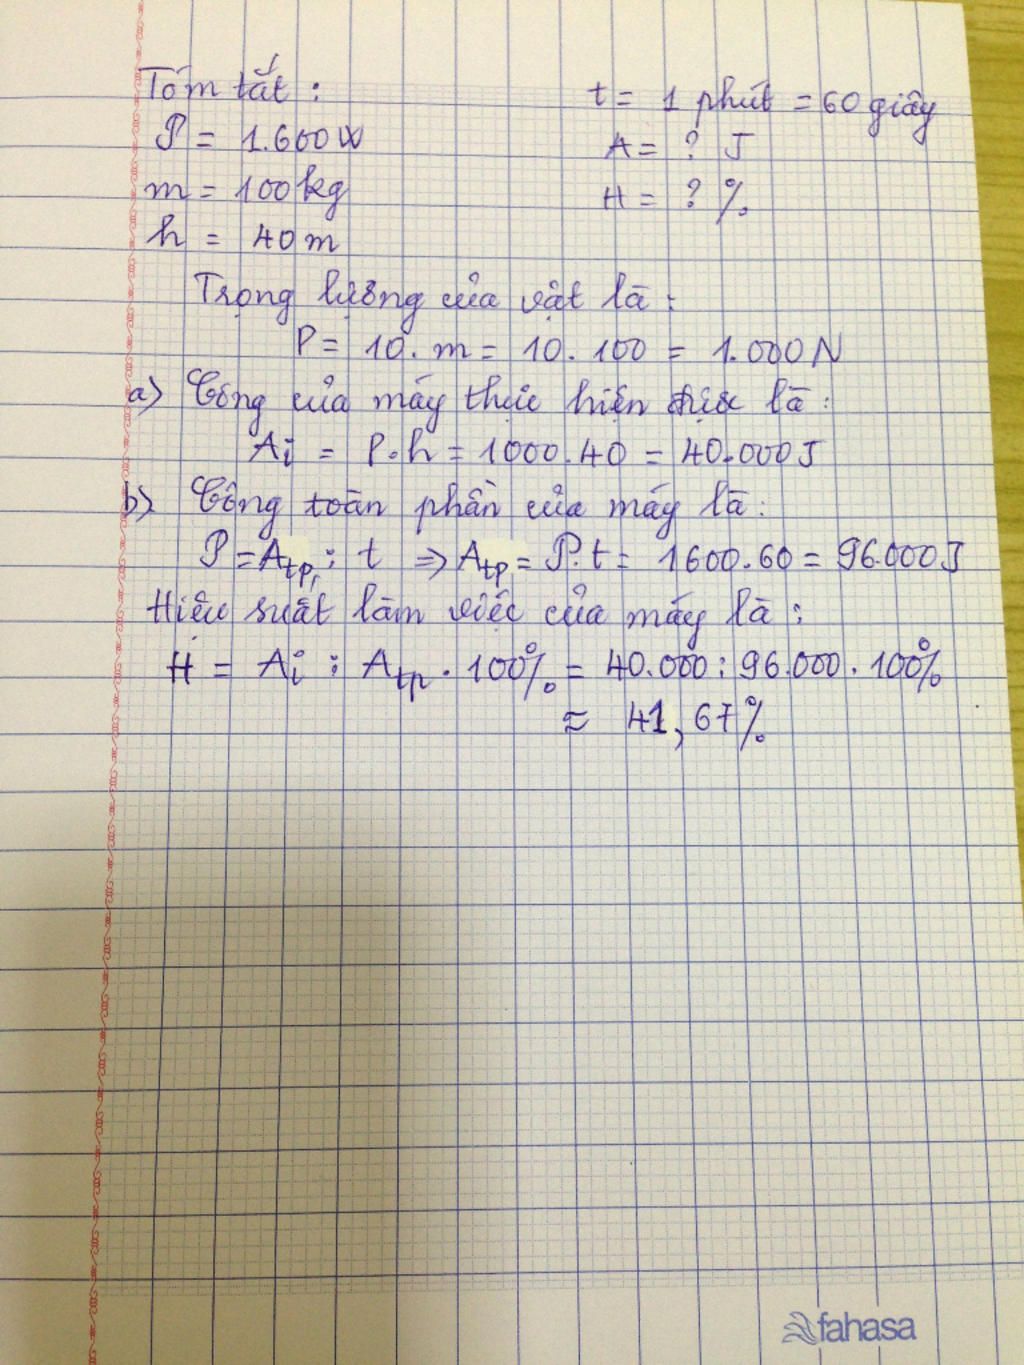 Tóm tắt :
P = 1.600W
m = 100kg
h = 40m
t = 1 phút = 60 giây
A = ? J
H = ? %
Trọng lượng của vật là :
P = 10. m = 10. 100 = 1.000N
a) Công của máy thực hiện được là :
Ai = P.h = 1000.40 = 40.000J
b) Công toàn phần của máy là :
P = Atp : t ⇒ Atp = P.t = 1600.60 = 96.000J
Hiệu suất làm việc của máy là :
H = Ai : Atp . 100% = 40.000 : 96.000 . 100%
≈ 41,67%
fahasa